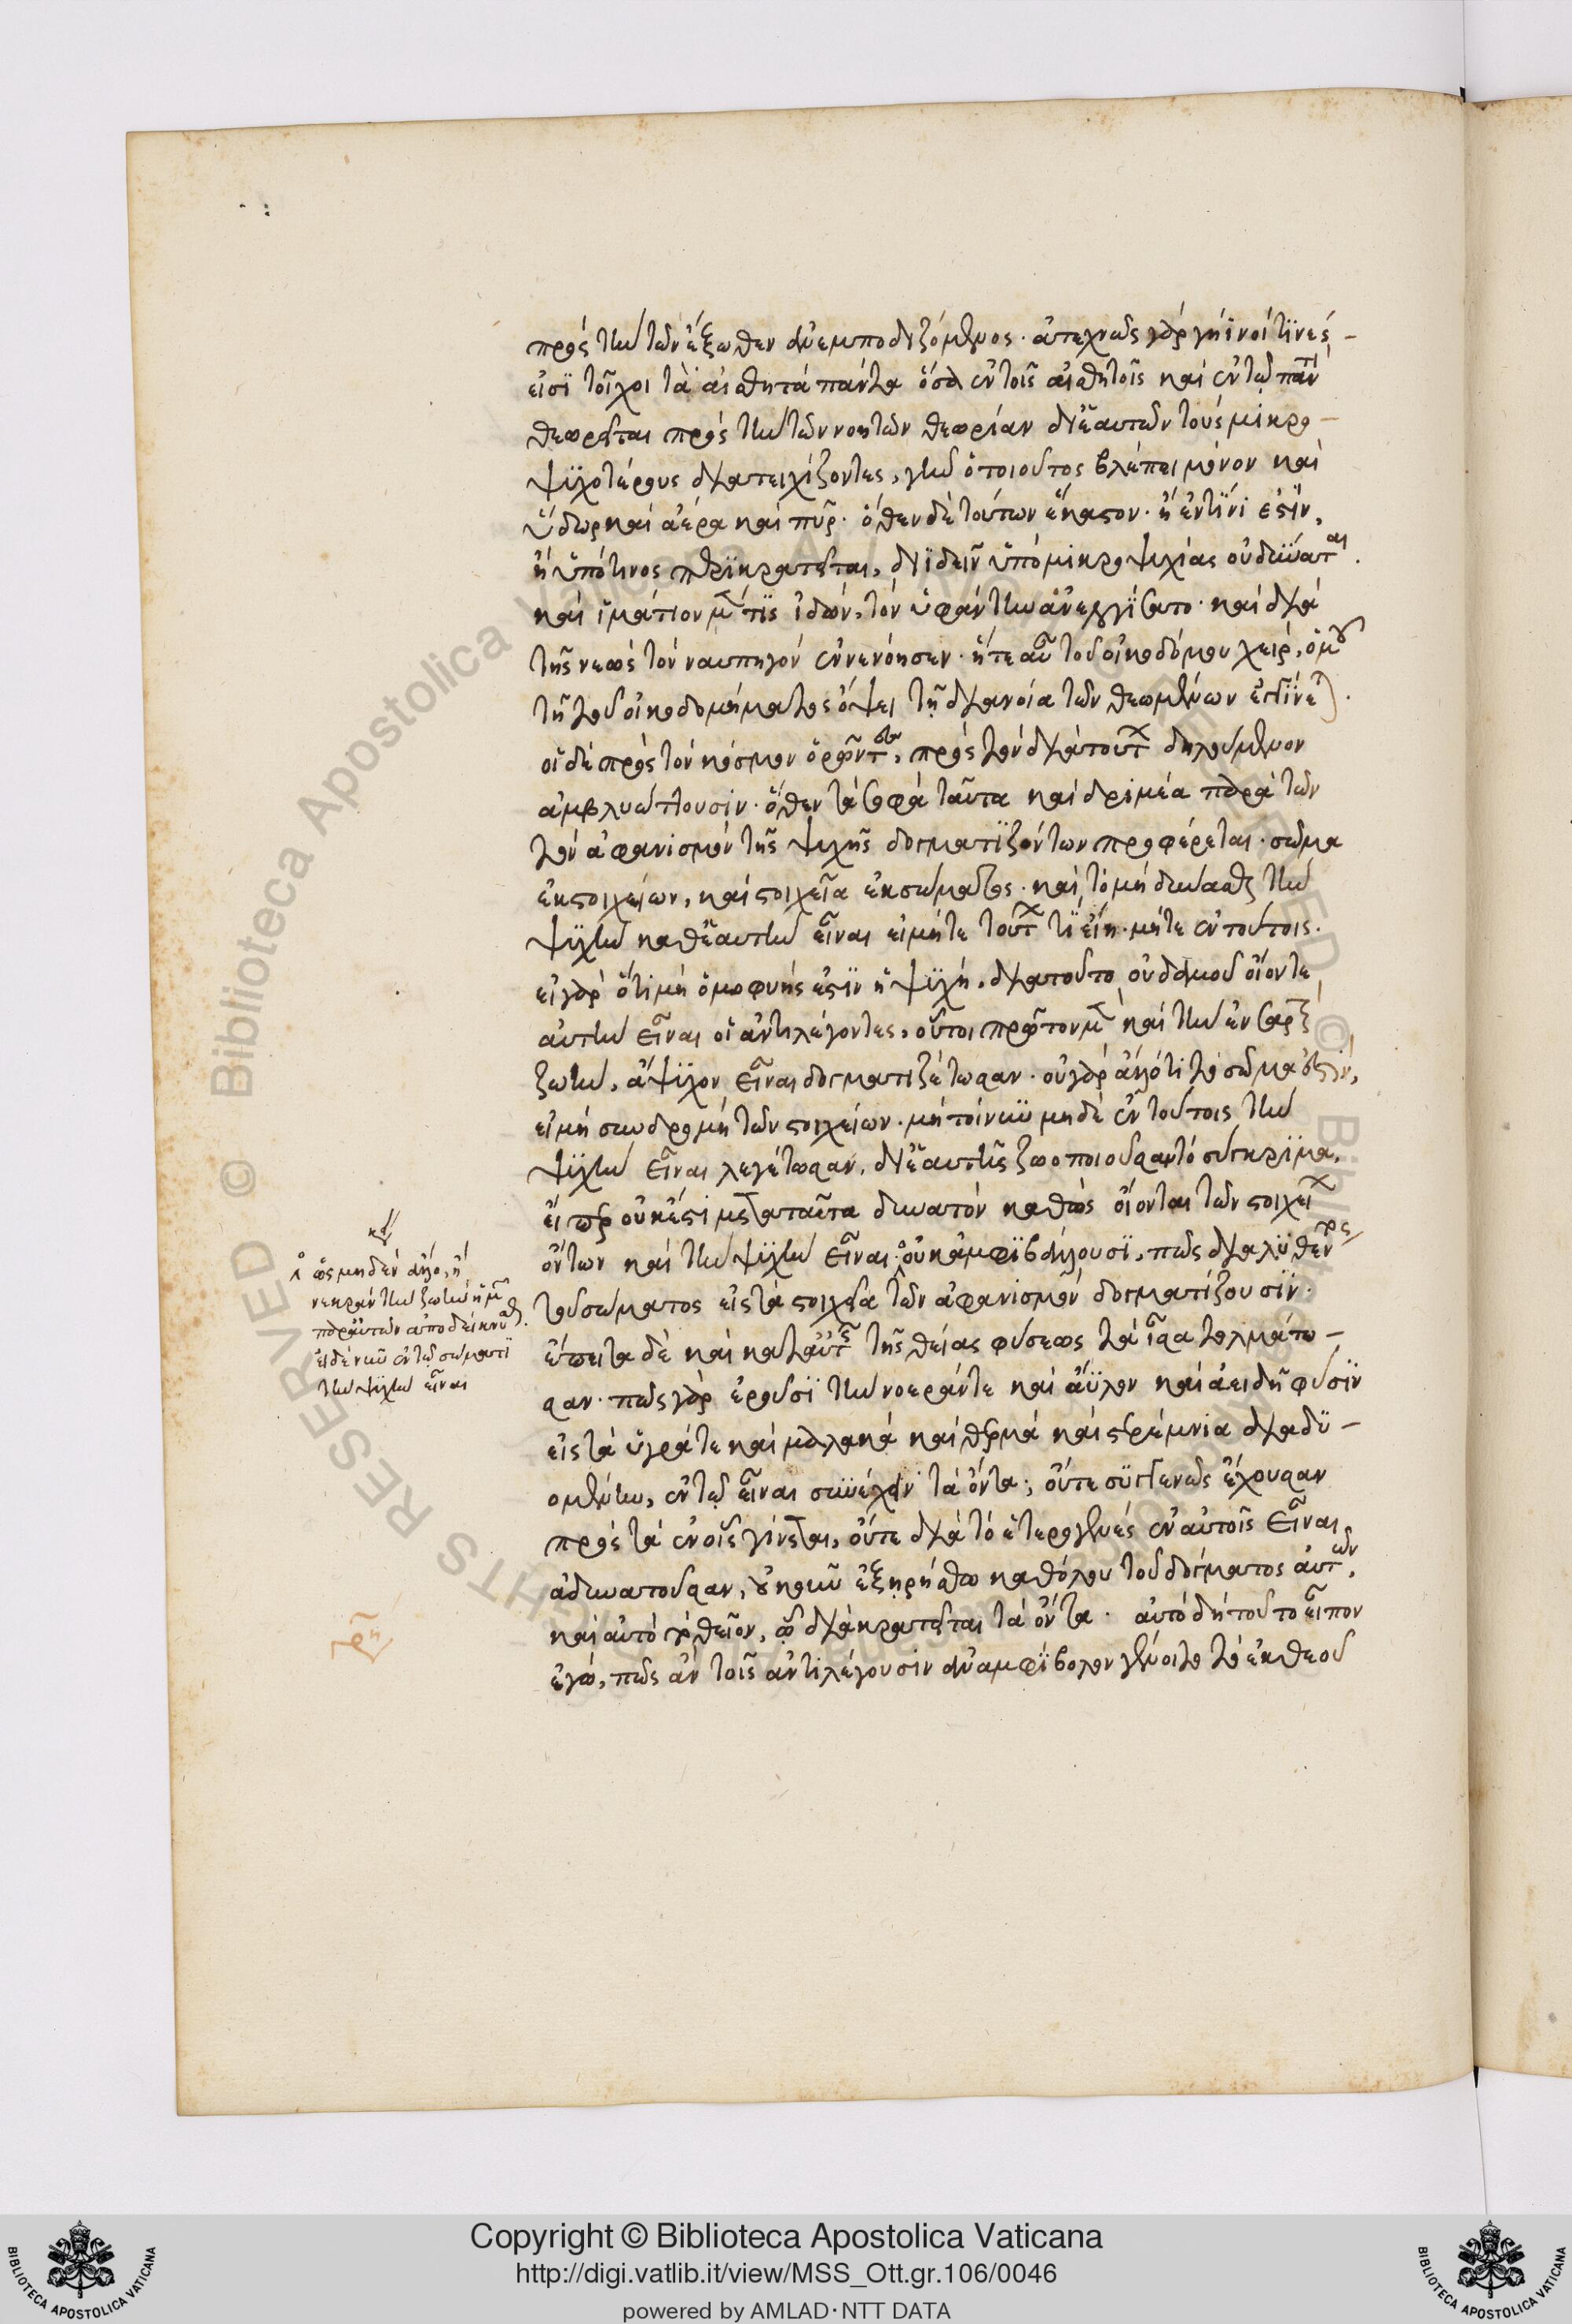 πρὸς τὴν τῶν ἔξωθεν ἀνεμποδιζόμενος. ἀτεχνῶς γὰρ γήϊνοί τινές
εἰσι τοῖχοι τὰ αἰσθητὰ πάντα ὅσα ἐν τοῖς αἰσθητοῖς καὶ ἐν τῷ παντὶ
θεωρεῖται πρὸς τὴν τῶν νοητῶν θεωρίαν δι' ἑαυτῶν τοὺς μικρο-
ψυχοτέρους διατειχίζοντες, γῆν ὁ τοιοῦτος βλέπει μόνον καὶ
ὕδωρ καὶ ἀέρα καὶ πῦρ. ὅθεν δὲ τούτων ἕκαστον. ἢ ἐν τίνι ἐστὶν,
ἢ ὑπό τινος περικρατεῖται, διϊδεῖν ὑπὸ μικροψυχίας οὐ δύναται.
καὶ ἱμάτιον μέν τις ἰδὼν, τὸν ὑφάντην ἀνελογίσατο. καὶ διὰ
τῆς νεὼς τὸν ναυπηγὸν ἐνενόησεν. ἥ τε αὖ τοῦ οἰκοδόμου χεὶρ, ὁμοῦ
τῇ τοῦ οἰκοδομήματος ὄψει τῇ διανοίᾳ τῶν θεωμένων ἐγγίνεται.
οἱ δὲ πρὸς τὸν κόσμον ὁρῶντες, πρὸς τὸν διὰ τούτων δηλούμενον
ἀμβλυώττουσιν. ὅθεν τὰ σοφὰ ταῦτα καὶ δριμέα παρὰ τῶν
τὸν ἀφανισμὸν τῆς ψυχῆς δογματιζόντων προφέρεται. σῶμα
ἐκ στοιχείων, καὶ στοιχεῖα ἐκ σώματος. καὶ τὸ μὴ δύνασθαι τὴν
ψυχὴν καθ' ἑαυτὴν εἶναι εἰ μήτε τούτων τι εἴη. μήτε ἐν τούτοις.
εἰ γὰρ ὅτι μὴ ὁμοφυής ἐστιν ἡ ψυχὴ. διὰ τοῦτο οὐδαμοῦ οἴονται
αὐτὴν εἶναι οἱ ἀντιλέγοντες, οὗτοι πρῶτον μὲν καὶ τὴν ἐν σαρκὶ
ζωὴν, ἄψυχον εἶναι δογματιζέτωσαν. οὐ γὰρ ἄλλό τι τὸ σῶμά ἐστιν,
εἰ μὴ συνδρομὴ τῶν στοιχείων. μὴ τοίνυν μηδὲ ἐν τούτοις τὴν
ψυχὴν εἶναι λεγέτωσαν, δι' ἑαυτῆς ζωοποιοῦσαν τὸ σύγκριμα.
εἴπερ οὐκ ἔστι μετὰ ταῦτα δυνατὸν καθὼς οἴονται τῶν στοιχείων
ὄντων καὶ τὴν ψυχὴν εἶναι. οὐκ ἀμφιβάλλουσι, πῶς διαλυθέντος
τοῦ σώματος εἰς τὰ στοιχεῖα τὸν ἀφανισμὸν δογματίζουσιν.
ἔπειτα δὲ καὶ κατ' αὐτῆς τῆς θείας φύσεως τὰ ἶσα τολμάτω-
σαν. πῶς γὰρ ἐροῦσι τὴν νοεράν τε καὶ ἄϋλον καὶ ἀειδῆ φύσιν
εἰς τὰ ὑγρά τε καὶ μαλακὰ καὶ θερμὰ καὶ στερέμνια διαδυ-
ομένην, ἐν τῷ εἶναι συνέχειν τὰ ὄντα; οὔτε συγγενῶς ἔχουσαν
πρὸς τὰ ἐν οἷς γίνεται, οὔτε διὰ τὸ ἑτερογενὲς ἐν αὐτοῖς εἶναι
ἀδυνατοῦσαν, οὐκοῦν ἐξῃρήσθω καθόλου τοῦ δόγματος αὐτῶν,
καὶ αὐτὸ τὸ θεῖον, ᾧ διακρατεῖται τὰ ὄντα. αὐτὸ δὴ τοῦτο εἶπον
ἐγὼ, πῶς ἂν τοῖς ἀντιλέγουσιν ἀναμφίβολον γένοιτο τὸ ἐκ θεοῦ
ὡς μηδὲν ἄλλο, ἢ
νεκρὰν τὴν ζωὴν ἡμῶν
παρ' αὐτῶν ἀποδείκνυσθαι.
εἰ δὲ νῦν ἐν τῷ σώματι
τὴν ψυχὴν εἶναι
Copyright © Biblioteca Apostolica Vaticana
http://digi.vatlib.it/view/MSS_Ott.gr.106/0046
powered by AMLAD·NTT DATA